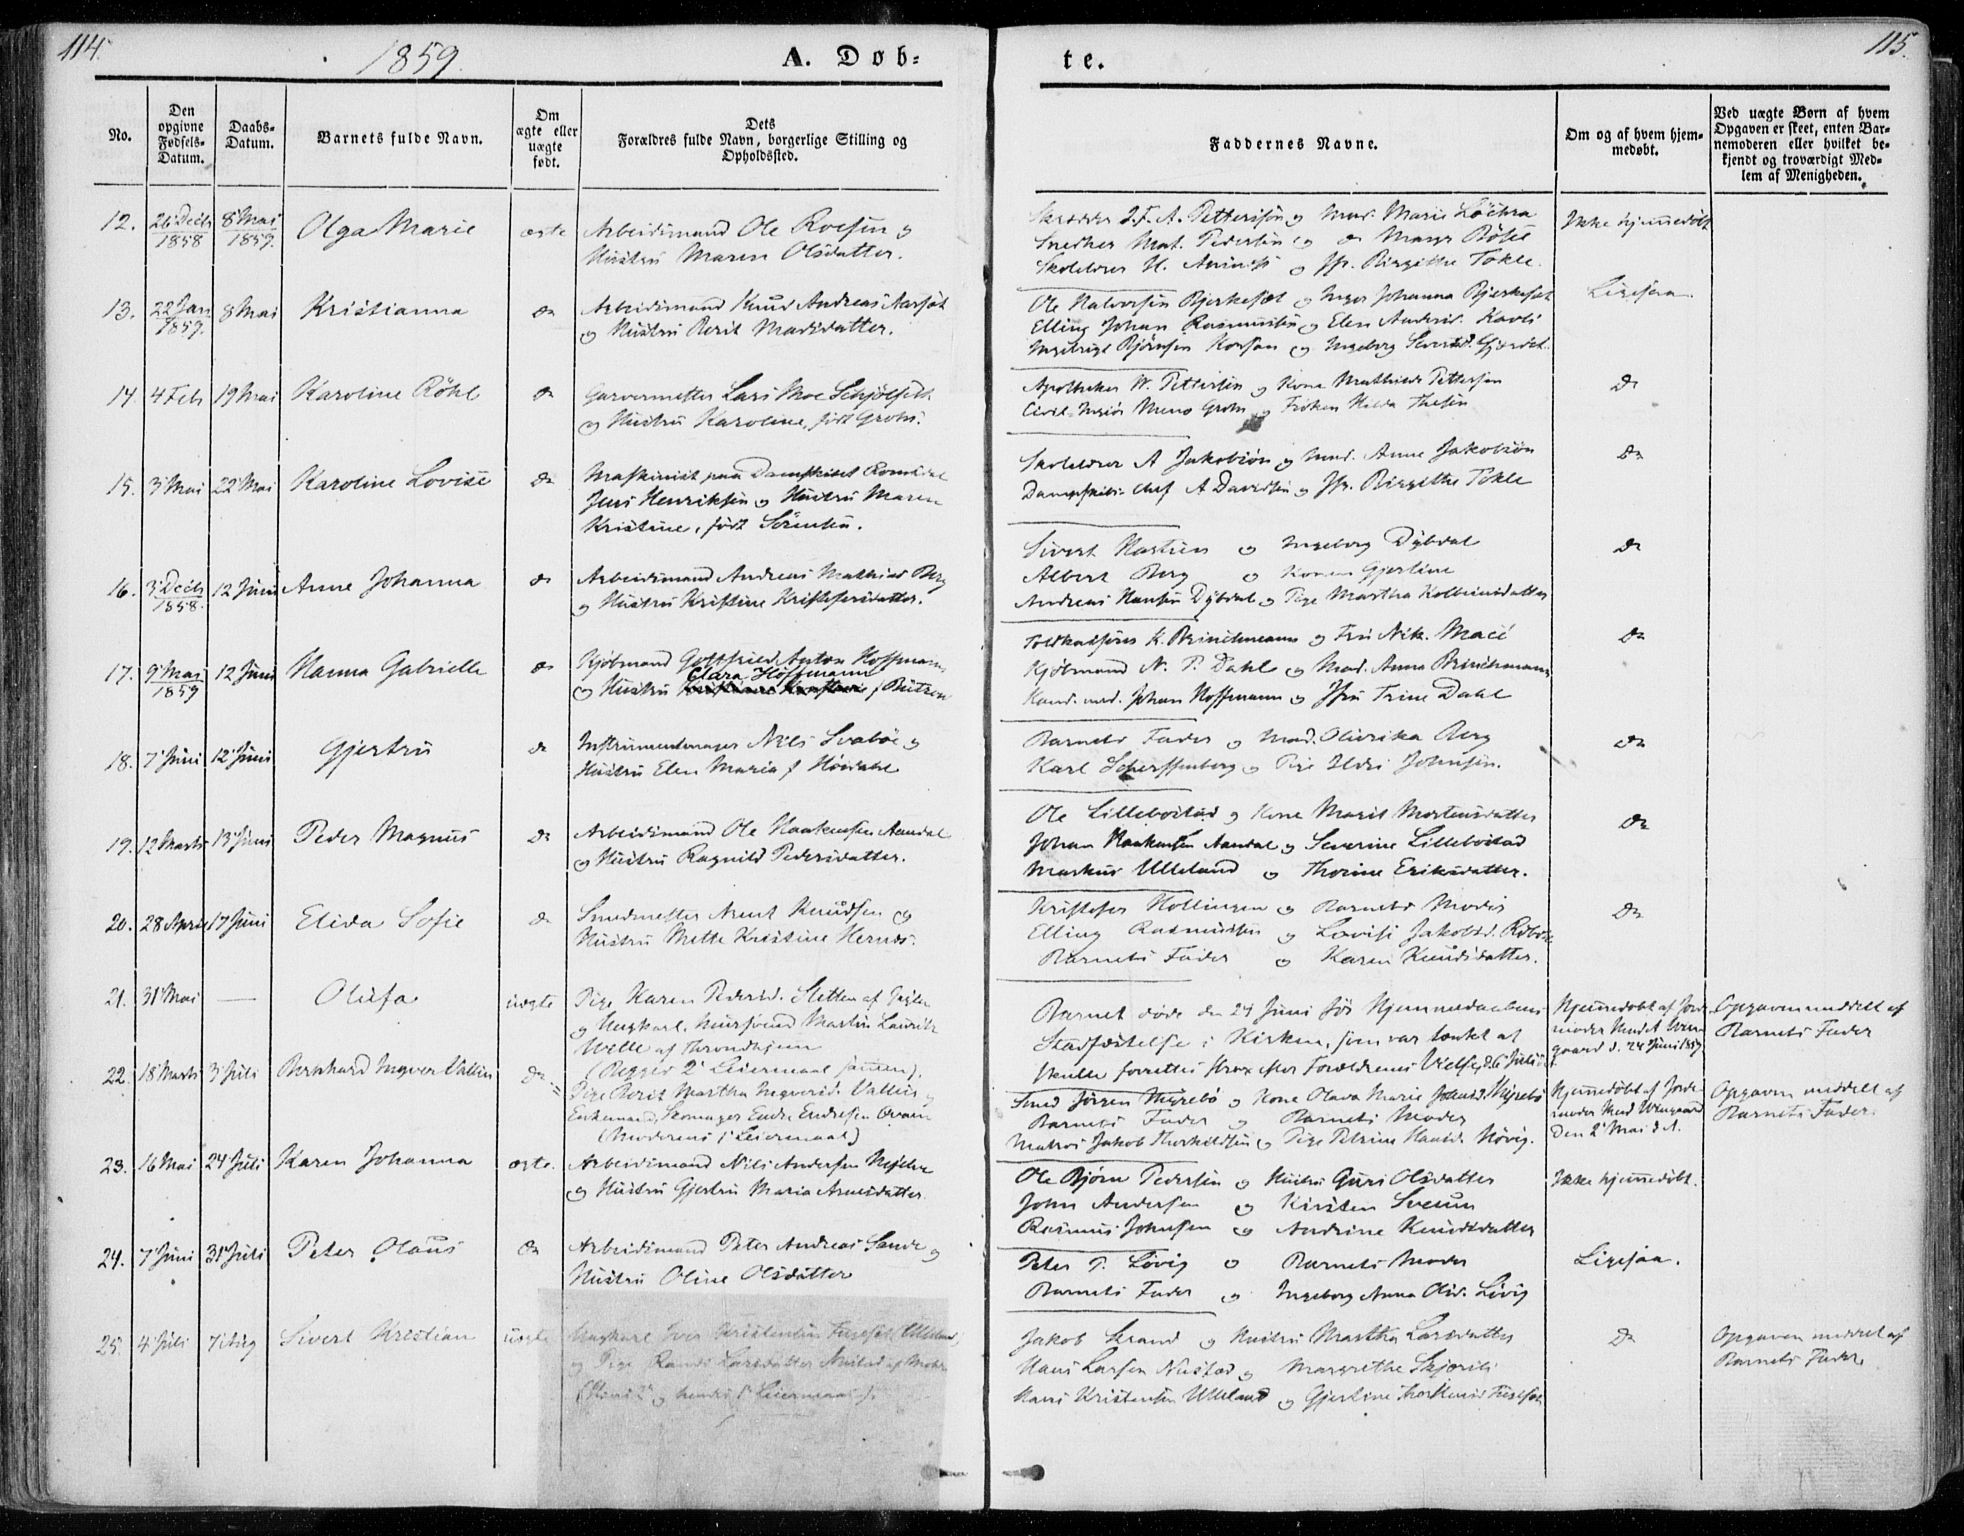 114.
1859.
A. Døb-
te.
115.
No.
Den
opgivne
Fødsels-
Datum.
Daabs-
Datum.
Barnets fulde Navn.
Om
ægte eller
uægte
født.
Dets
Forældres fulde Navn, borgerlige Stilling og
Opholdssted.
Faddernes Navne.
Om og af hvem hjem-
medøbt.
Ved uægte Børn af hvem
Opgaven er skeet, enten Bar-
nemoderen eller hvilket be-
kjendt og troværdigt Med-
lem af Menigheden.
12.
26 Decb
1858
8 Mai
1859.
Olga Marie
ægte
Arbeidsmand Ole Roesen og
Hustru Maren Olsdatter.
Skrædder J. F. A. Pettersen og Mad. Marie
Snedker Mat. Pedersen og
Skolelærer H. og Jfr. Birgithe Tokle.
Ikke hjemmedøbt
13.
22 Jan
1859.
8 Mai
Kristianna
do
Arbeidsmand Knud Andreas Aarsæt
og Hustru Berit Madsdatter.
Ole Halvorsen Bjerkeset og Inger Johanna Bjerkeset
Elling Johan Rasmussen og Elen Andersd. Kavli
Ingebrigt Bjørnsen og Ingeborg
Ligesaa.
14.
4 Feb
19 Mai
Karoline Röhl
do
Garvermester Lars Moe
og Hustru Karoline, født Grohn.
Apotheker W. Pettersen og Kone Mathilde Pettersen
Civil Meno Grohn og Frøken Hilda Thesen
Do
15.
3 Mai
22 Mai
Karoline Lovise
do
Maskinist paa Dampskibet Romsdal
Jens Henriksen og Hustru Maren
Kristine, født Sörensen.
Skolelærer A Jakobsön og Mad. Anne Jakobsön
Dampskibs- A Davidsen og Jfr. Birgithe Tokle
Do
16.
3 Decb
1858.
12 Juni
Anne Johanna
do
Arbeidsmand Andreas Mathias Berg
og Hustru Kristine Kristofersdatter.
Sivert og Ingeborg Dybdal
Albert Berg og Konen Gjertine
Andreas Hansen Dybdal og Pige Martha Kolbeinsdatter
Do
17.
9 Mai
1859
12 Juni
Hanna Gabrielle
do
Kjöbmand Gottfried Anton Hoffmann
Clara Hoffmann
og Hustru
Toldkasserer K. Brinchmann og Fru Nik. Macé
Kjöbmand N. P. Dahl og Mad. Anna Brinchmann
Kand. med. Johan Hoffmann og Jfru Trine Dahl
Do
18.
7 Juni
12 Juni
Gjertru
do
Instrumentmager Nils Svaböe og
Hustru Elen Maria f
Barnets Fader og Mad. Olivrika Berg
Karl Scherffenberg og Pige Johnsen.
Do
19.
12 Marts
13 Juni
Peder Magnus
do
Arbeidsmand Ole Haakensen Aandal
og Hustru Ragnild Pedersdatter.
Ole Lillebostad og Kone Marit Mortensdatter
Johan Haakensen Aandal og Severine Lillebostad
Markus Ulleland og Thorine Eriksdatter.
Do
20.
28 April
17 Juni
Elida Sofie
do
Smedmester Arnt Knudsen og
Hustru Mette Kristine Hernæs.
Kristofer Hollingen og Barnets Moder
Elling Rasmussen og Lovise Jakobsd.
Barnets Fader og Karen Knudsdatter.
Do
21.
31 Mai
Olufa
uægte
Pige Karen Pedersd. Sletten af
og Ungkarl, Martin Lauritz
Welle af Throndhjem
(Begges 2 Leiermaal sammen).
Barnet döde den 24 Juni för Hjemmedaabens
Stadfæstelse i Kirken, som var tænkt at
skulle forrettes strax efter Forældrenes Vielse, d. 6 Juli
Hjemmedöbt af Jorde-
moder
d. 24 Juni 1859
Opgaven meddelt af
Barnets Fader
22.
18 Marts
3 Juli
Bernhard Ingver Vallin
do
Pige Berit Martha Ingversd. Vallin og
Enkemand, Skomager Endre Endresen
(Moderens 1 Leiermaal)
Smed Jörgen Myrebö og Kone Olava Marie Johnsd. Myrebö
Barnets Fader og Barnets Moder
Matros Jakob Thorkildsen og Pige Petrine Hansd.
Hjemmedöbt af Jorde-
moder Mad
Den 2 Mai d. A.
Opgaven meddelt af
Barnets Fader.
23.
16 Mai
24 Juli
Karen Johanna
ægte.
Arbeidsmand Nils Andersen Mjelve
og Hustru Gjertru Maria Arnesdatter
Ole Bjørn Pedersen og Hustru Guri Olsdatter
John Andersen og Kirsten
Rasmus Johnsen og Andrine Knudsdatter
Ikke hjemmedöbt.
24.
7 Juni
31 Juli
Peter Olaus
do
Arbeidsmand Peter Andreas Sande og
Hustru Oline Olsdatter
Peter P. Lövig og Barnets Moder
Barnets Fader og Ingeborg Anna Olsd. Lövig
Ligesaa.
25.
4 Juli
7 Aug
Sivert Kristian
uægte
Ungkarl Iver Kristensen Ulleland,
og Pige Randi Larsdatter Nustad af
(Hans 2 og hendes 1 Leiermaal).
Jakob Strand og Hustru Martha Larsdatter
Hans Larsen Nustad og Margrethe
Hans Kristensen Ulleland og Gjertine
Do
Opgaven meddelt af
Barnets Fader.